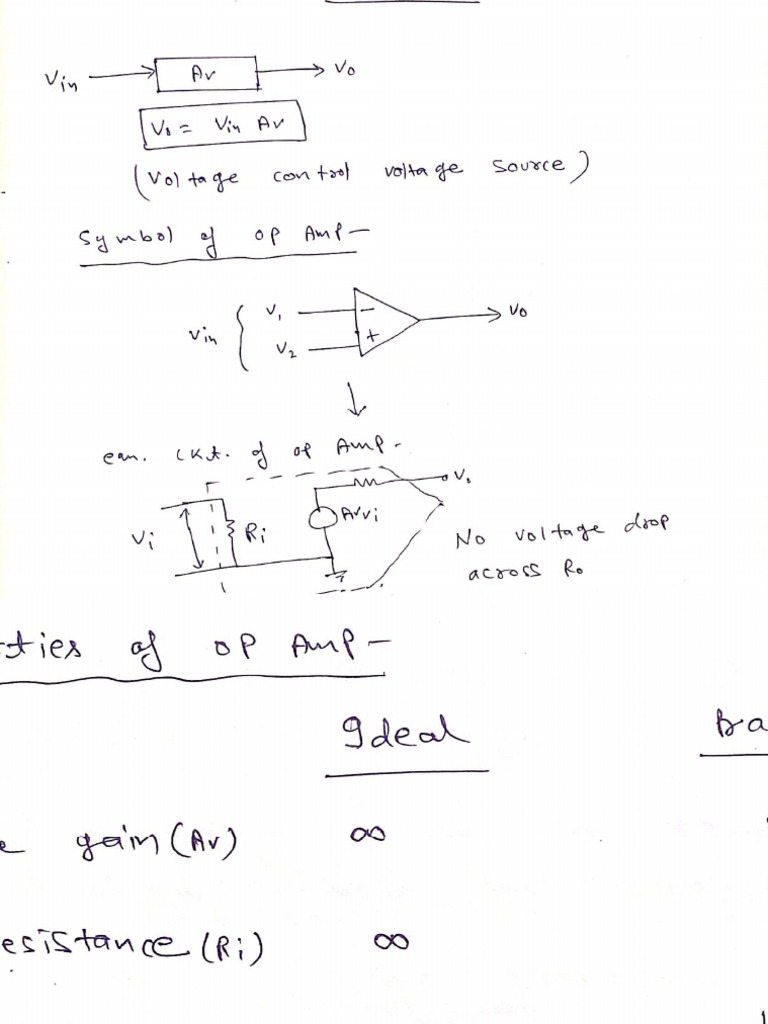 Vin Av Vo
Vo = Vin Av
(Voltage control voltage source)
Symbol of OP Amp-
Vin { V1 - Vo
V2 +
eqn. cKt. of op Amp-
Vo
Vi Ri AvVi
No voltage drop
across Ro
rties of OP Amp-
Ideal
e gain (Av) ∞
esistance (Ri) ∞